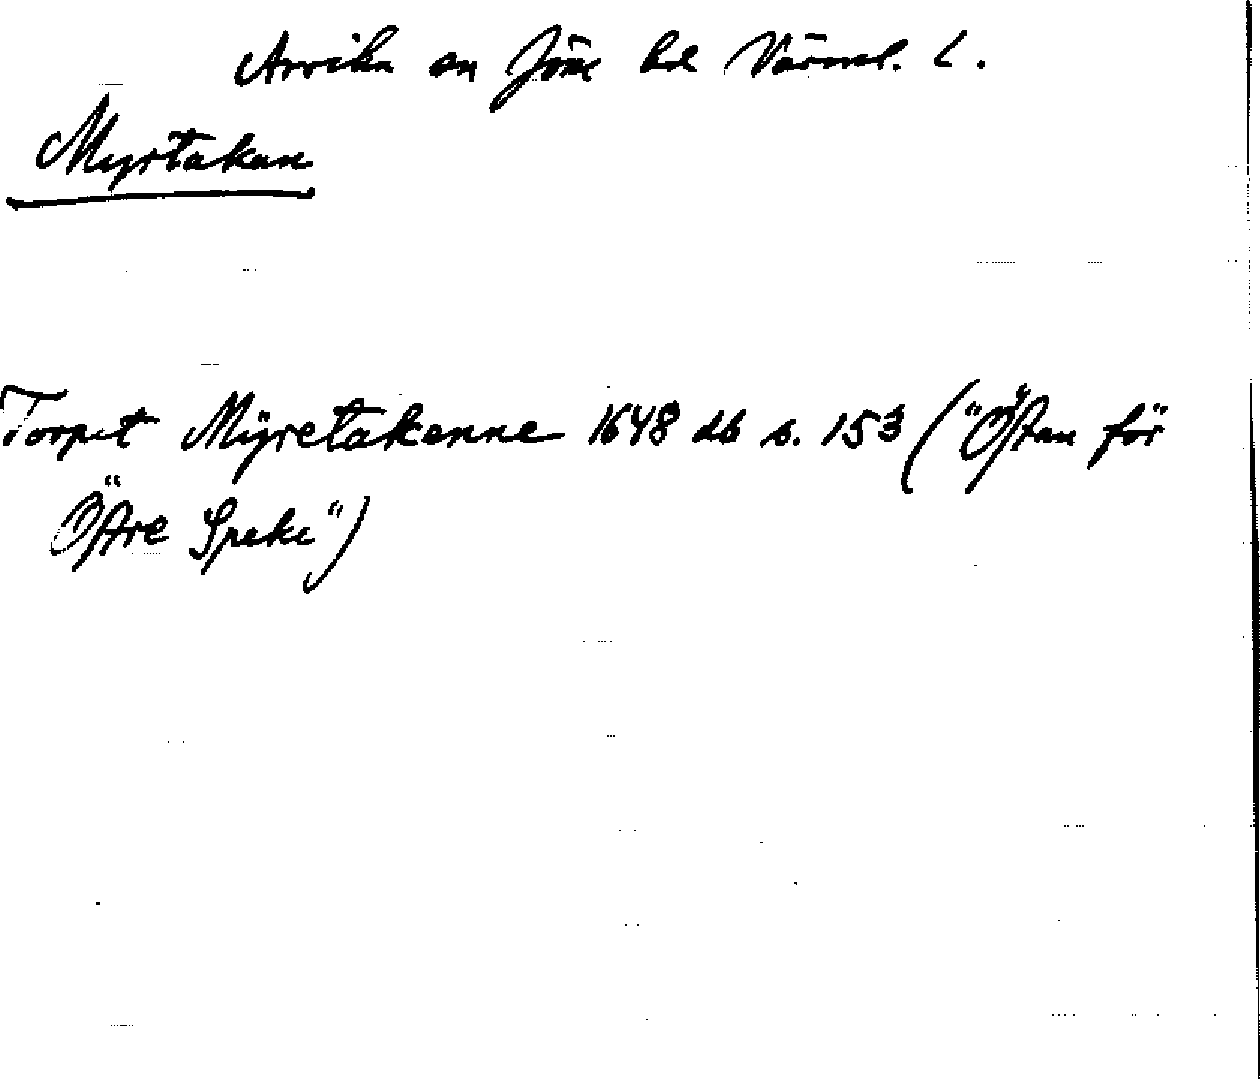 Arvika sn Jöss hd Värml. L.
Myrtakan
Torpet Mÿretakenne 1648 db s. 153 ("Öftan för
Öftre Speke")